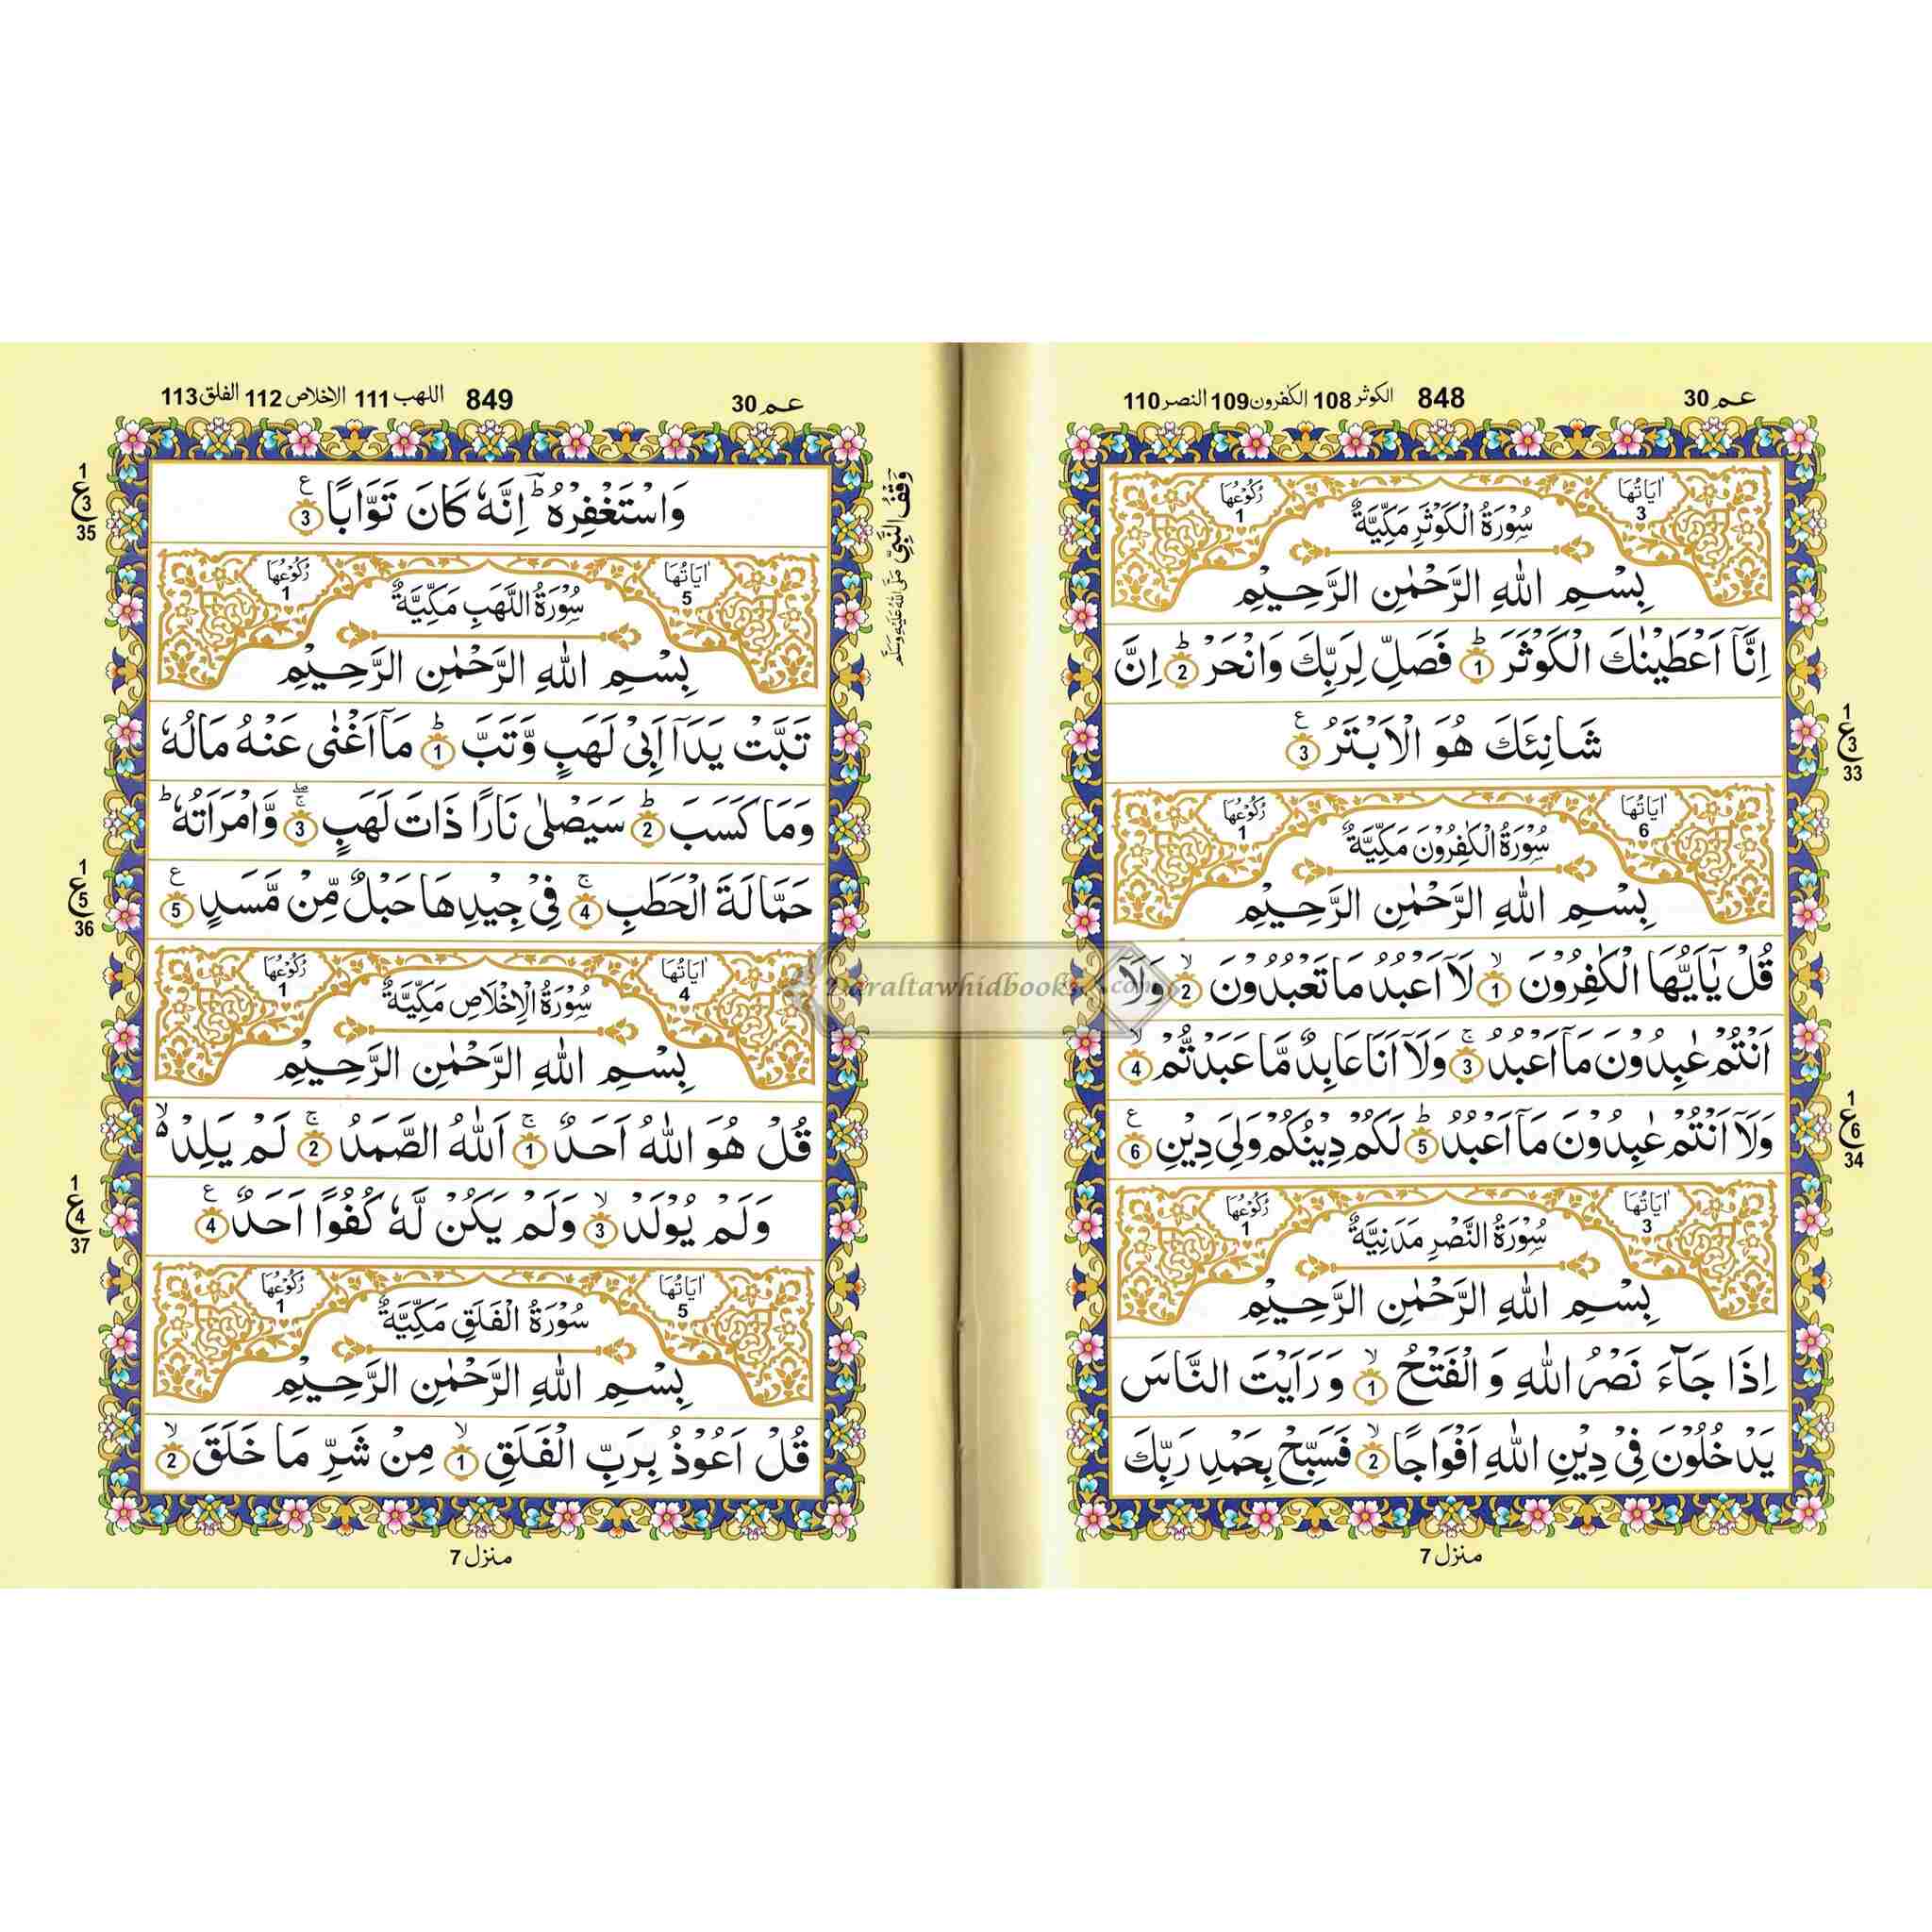 عـم 30
848
الكوثر 108 الكٰفرون 109 النصر 110
اٰيَاتُهَا 3
سُوْرَةُ الْكَوْثَرِ مَكِّيَّةٌ
رُكُوْعُهَا 1
بِسْمِ اللّٰهِ الرَّحْمٰنِ الرَّحِيْمِ
اِنَّاۤ اَعْطَيْنٰكَ الْكَوْثَرَ ؕ 1 فَصَلِّ لِرَبِّكَ وَانْحَرْ ؕ 2 اِنَّ
شَانِئَكَ هُوَ الْاَبْتَرُ 3 ع
1 ع 3 33
اٰيَاتُهَا 6
سُوْرَةُ الْكٰفِرُوْنَ مَكِّيَّةٌ
رُكُوْعُهَا 1
بِسْمِ اللّٰهِ الرَّحْمٰنِ الرَّحِيْمِ
قُلْ يٰۤاَيُّهَا الْكٰفِرُوْنَ ۙ 1 لَاۤ اَعْبُدُ مَا تَعْبُدُوْنَ ۙ 2 وَلَاۤ
اَنْتُمْ عٰبِدُوْنَ مَاۤ اَعْبُدُ ۚ 3 وَلَاۤ اَنَا عَابِدٌ مَّا عَبَدْتُّمْ ۙ 4
وَلَاۤ اَنْتُمْ عٰبِدُوْنَ مَاۤ اَعْبُدُ ؕ 5 لَكُمْ دِيْنُكُمْ وَلِيَ دِيْنِ 6 ع
1 ع 6 34
اٰيَاتُهَا 3
سُوْرَةُ النَّصْرِ مَدَنِيَّةٌ
رُكُوْعُهَا 1
بِسْمِ اللّٰهِ الرَّحْمٰنِ الرَّحِيْمِ
اِذَا جَآءَ نَصْرُ اللّٰهِ وَ الْفَتْحُ ۙ 1 وَ رَاَيْتَ النَّاسَ
يَدْخُلُوْنَ فِيْ دِيْنِ اللّٰهِ اَفْوَاجًا ۙ 2 فَسَبِّحْ بِحَمْدِ رَبِّكَ
منزل 7
عـم 30
849
اللهب 111 الاخلاص 112 الفلق 113
وَاسْتَغْفِرْهُ ؕ اِنَّهٗ كَانَ تَوَّابًا 3 ع
1 ع 3 35
وَقْفُ النَّبِيِّ صَلَّى اللّٰهُ عَلَيْهِ وَسَلَّمَ
اٰيَاتُهَا 5
سُوْرَةُ اللَّهَبِ مَكِّيَّةٌ
رُكُوْعُهَا 1
بِسْمِ اللّٰهِ الرَّحْمٰنِ الرَّحِيْمِ
تَبَّتْ يَدَاۤ اَبِيْ لَهَبٍ وَّتَبَّ ؕ 1 مَاۤ اَغْنٰى عَنْهُ مَالُهٗ
وَمَا كَسَبَ ؕ 2 سَيَصْلٰى نَارًا ذَاتَ لَهَبٍ ۖۚ 3 وَّامْرَاَتُهٗ ؕ
حَمَّالَةَ الْحَطَبِ ۚ 4 فِيْ جِيْدِهَا حَبْلٌ مِّنْ مَّسَدٍ 5 ع
1 ع 5 36
اٰيَاتُهَا 4
سُوْرَةُ الْاِخْلَاصِ مَكِّيَّةٌ
رُكُوْعُهَا 1
بِسْمِ اللّٰهِ الرَّحْمٰنِ الرَّحِيْمِ
قُلْ هُوَ اللّٰهُ اَحَدٌ ۚ 1 اَللّٰهُ الصَّمَدُ ۚ 2 لَمْ يَلِدْ ۙ۬
وَلَمْ يُوْلَدْ ۙ 3 وَلَمْ يَكُنْ لَّهٗ كُفُوًا اَحَدٌ 4 ع
1 ع 4 37
اٰيَاتُهَا 5
سُوْرَةُ الْفَلَقِ مَكِّيَّةٌ
رُكُوْعُهَا 1
بِسْمِ اللّٰهِ الرَّحْمٰنِ الرَّحِيْمِ
قُلْ اَعُوْذُ بِرَبِّ الْفَلَقِ ۙ 1 مِنْ شَرِّ مَا خَلَقَ ۙ 2
منزل 7
Daraltawhidbooks.com